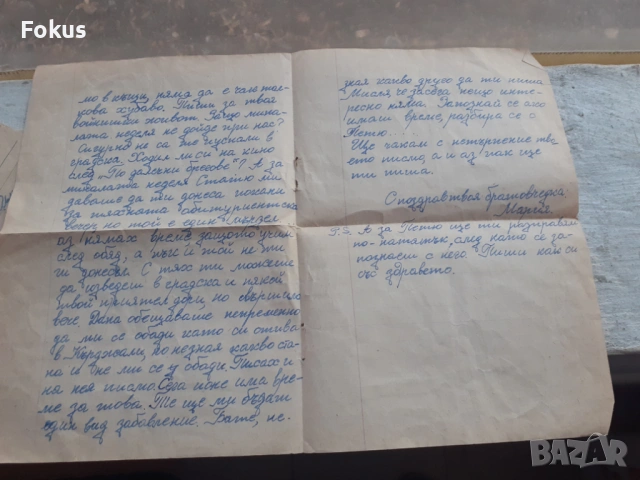 Fokus
мо в къщи, няма да е чак тол-
кова хубаво. Пиши за твоя
войнишки живот. Защо мина-
лата неделя не дойде при нас?
Сигурно не са те пуснали в
градска. Ходил ли си на кино
след "По далечни брегове"? А за
миналата неделя Стайо ми
даваше да ти донеса покани
за тяхната абитуриентска
вечер но той е един мързел
аз нямах време защото учим
след обяд, а пък и той не ти
ги донесъл. С тях ти можеше
да излезеш в градска и някой
твой приятел дори, но свършило
вече. Дана обещаваше непременно
да ми се обади като си отива
в Кърджали, но незная какво ста-
на и не ми се у обади. Писах и
на нея писмо. Сега поне има вре-
ме за това. Те ще ми бъдат
един вид забавление. Бате, не-
зная какво друго да ти пиша
Мисля че засега нещо инте-
ресно няма. Запознай се ако
имаш време, разбира се с
Петю...
Ще чакам с нетърпение тво-
ето писмо, а и аз пак ще
ти пиша.
С поздрав твоя братовчедка
Мария.
P.S. А за Петю ще ти разправям
по-нататък, след като се за-
познаеш с него. Пиши как си
със здравето.
BAZAR